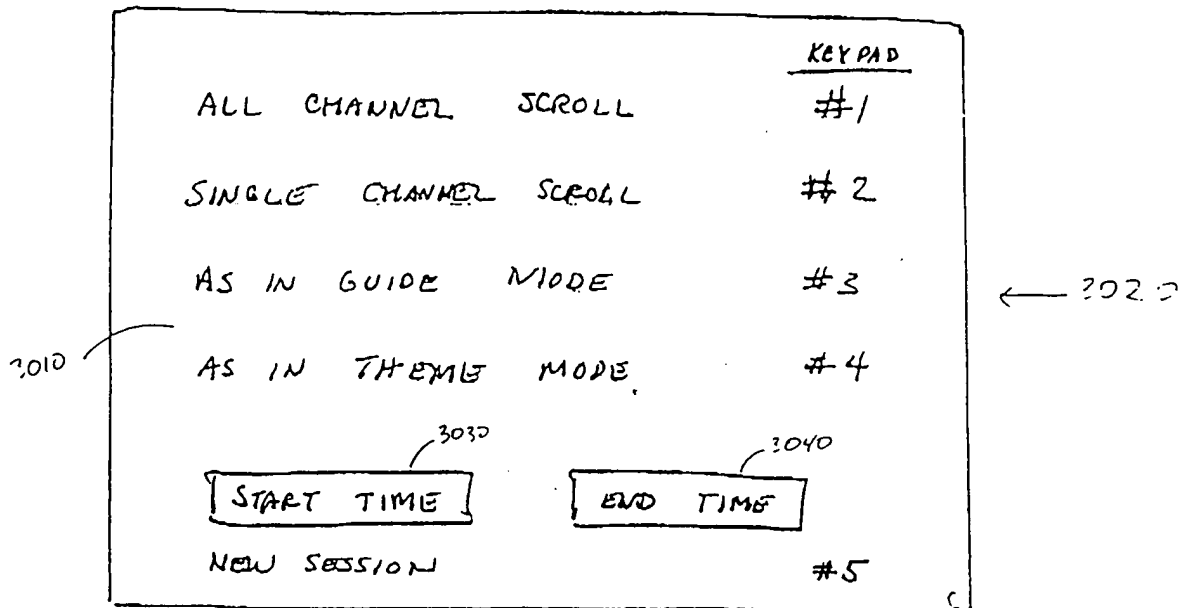 KEYPAD
ALL CHANNEL SCROLL #1
SINGLE CHANNEL SCROLL #2
AS IN GUIDE MODE #3
← 3020
3010
AS IN THEME MODE. #4
3030
3040
START TIME
END TIME
NEW SESSION #5